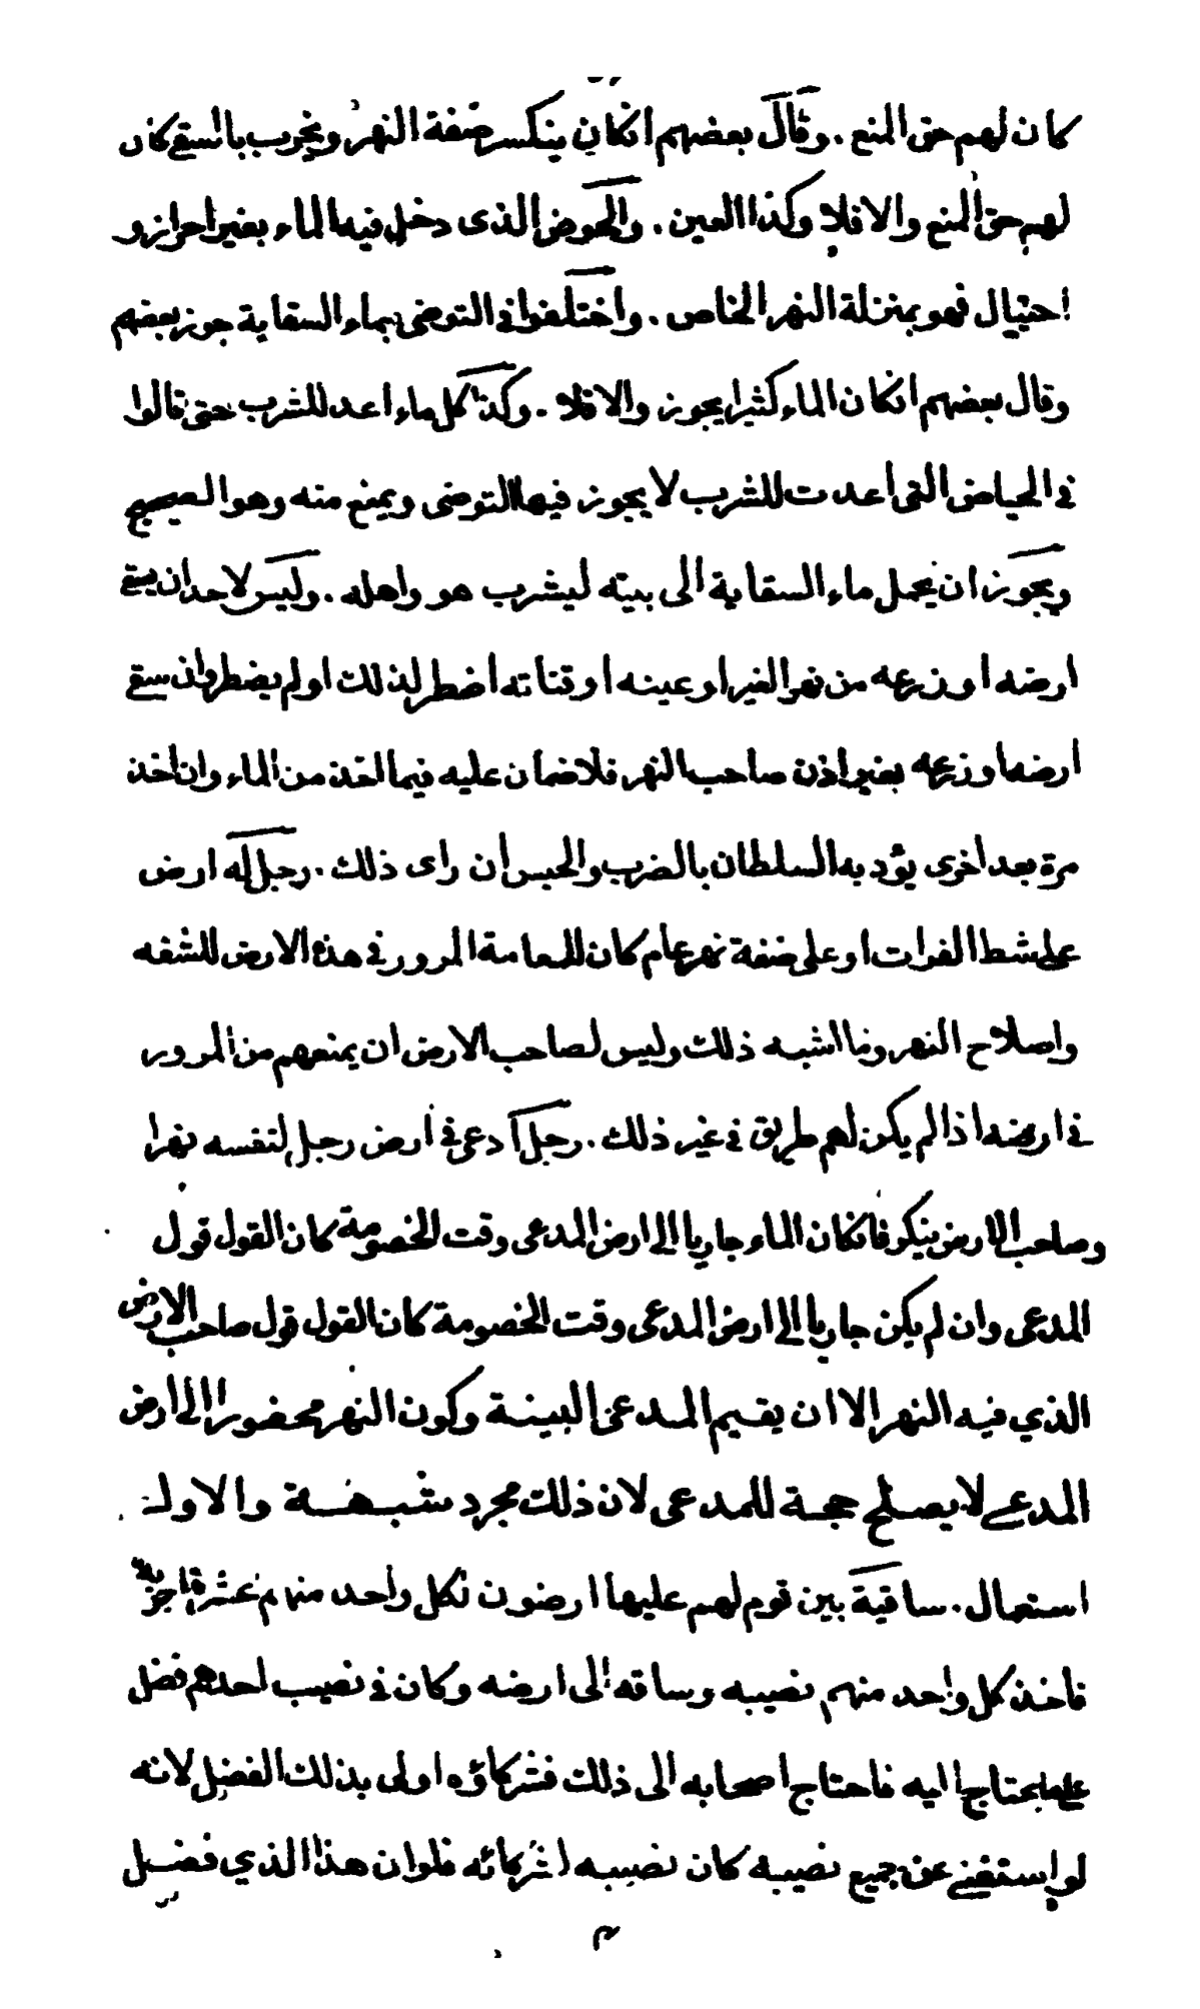 كان لهم حق المنع . وقال بعضهم انكان ينكسر ضفة النهر ويخرب بالسقى كان
لهم حق المنع والا فلا وكذا العين . والحوض الذى دخل فيه الماء بغير احراز و
احتيال فهو بمنزلة النهر الخاص . واختلفوا فى التوضى بماء السقاية جوز بعضهم
وقال بعضهم انكان الماء كثيرا يجوز والا فلا . وكذا كل ماء اعد للشرب حتى قالوا
فى الحياض التى اعدت للشرب لا يجوز فيها التوضى ويمنع منه وهو الصحيح
ويجوز ان يحمل ماء السقاية الى بيته ليشرب هو واهله . وليس لاحد ان يسقى
ارضه او زرعه من نهر الغير او عينه او قناته اضطر لذلك او لم يضطر وان سقى
ارضه او زرعه بغير اذن صاحب النهر فلا ضمان عليه فيما اخذ من الماء وان اخذ
مرة بعد اخرى يؤدبه السلطان بالضرب والحبس ان راى ذلك . رجل له ارض
على شط الفرات او على ضفة نهر عام كان للعامة المرور فى هذه الارض للشفه
واصلاح النهر وما اشبه ذلك وليس لصاحب الارض ان يمنعهم من المرور
فى ارضه اذا لم يكن لهم طريق فى غير ذلك . رجل ادعى فى أرض رجل لنفسه نهرا
وصاحب الارض ينكر فانكان الماء جاريا الى ارض المدعى وقت الخصومة كان القول قول
المدعى وان لم يكن جاريا الى ارض المدعى وقت الخصومة كان القول قول صاحب الارض
الذي فيه النهر الا ان يقيم المدعى البينة وكون النهر محفورا الى ارض
المدعى لا يصلح حجة للمدعى لان ذلك مجرد شبهة والاول
استعمال . ساقية بين قوم لهم عليها ارضون لكل واحد منهم عشرة اجربة
فاخذ كل واحد منهم نصيبه وساقه الى ارضه وكان فى نصيب احدهم فضل
على ما يحتاج اليه فاحتاج اصحابه الى ذلك فشركاؤه اولى بذلك الفضل لانه
لو استغنى عن جميع نصيبه كان نصيبه لشركائه فلو ان هذا الذي فضل